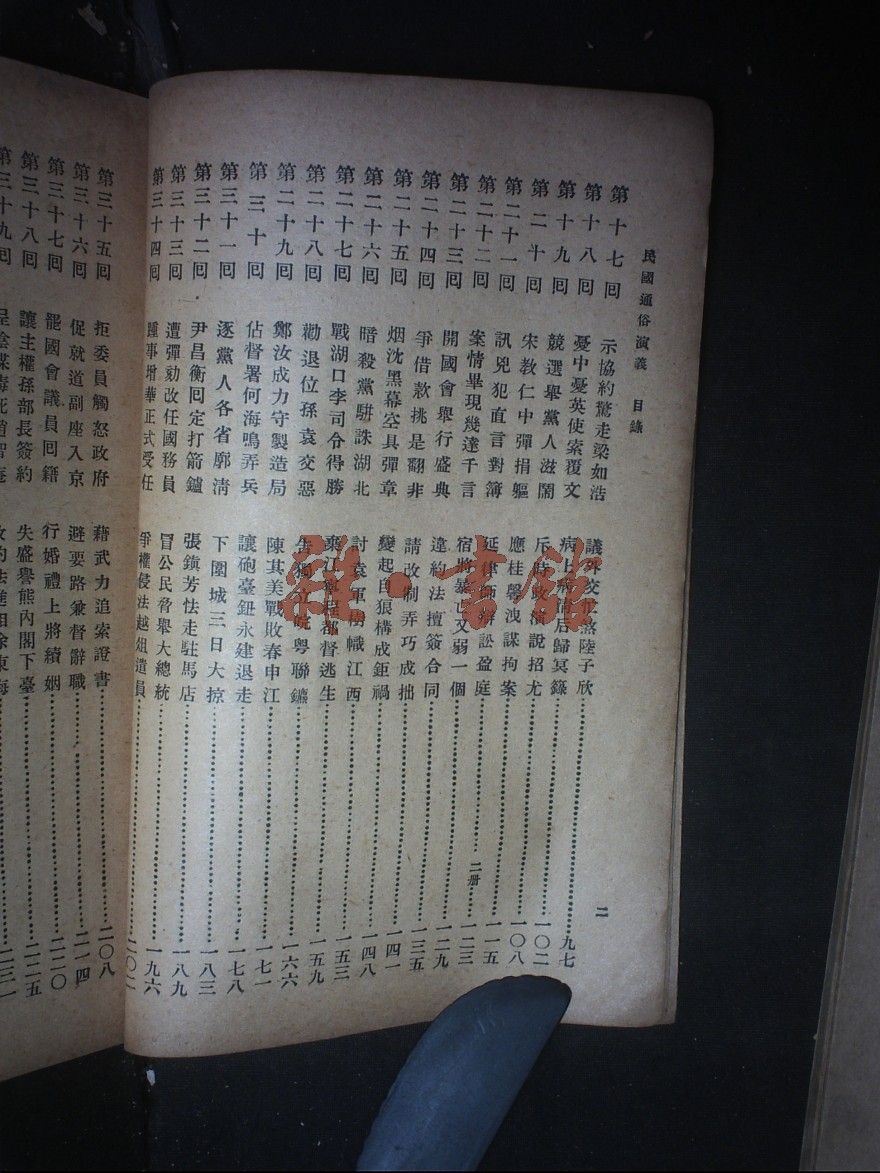 民國通俗演義 目錄
二
第十七囘 示協約驚走梁如浩 議外交忙煞陸子欣……九七
第十八囘 憂中憂英使索覆文 病上病清后歸冥籙……一〇二
第十九囘 競選舉黨人滋鬧 斥時政演說招尤……一〇八
第二十囘 宋教仁中彈捐軀 應桂馨洩謀拘案……一一五
第二十一囘 訊兇犯直言對簿 延律師辯訟盈庭……二册……一二三
第二十二囘 案情畢現幾達千言 宿將暴亡又弱一個……一二九
第二十三囘 開國會舉行盛典 違約法擅簽合同……一三五
第二十四囘 爭借款挑是翻非 請改制弄巧成拙……一四一
第二十五囘 烟沈黑幕空具彈章 變起白狼構成鉅禍……一四八
第二十六囘 暗殺黨駢誅湖北 討袁軍樹幟江西……一五三
第二十七囘 戰湖口李司令得勝 棄江寧程都督逃生……一五九
第二十八囘 勸退位孫袁交惡 告獨立皖粵聯鑣……一六六
第二十九囘 鄭汝成力守製造局 陳其美戰敗春申江……一七一
第三十囘 佔督署何海鳴弄兵 讓砲臺鈕永建退走……一七八
第三十一囘 逐黨人各省廓清 下圍城三日大掠……一八三
第三十二囘 尹昌衡囘定打箭鑪 張鎮芳怯走駐馬店……一八九
第三十三囘 遭彈劾改任國務員 冒公民脅舉大總統……一九六
第三十四囘 踵事增華正式受任 爭權侵法越俎遣員……二〇二
第三十五囘 拒委員觸怒政府 藉武力追索證書……二〇八
第三十六囘 促就道副座入京 避要路兼督辭職……二一四
第三十七囘 罷國會議員囘籍 行婚禮上將續姻……二二〇
第三十八囘 讓主權孫部長簽約 失盛譽熊內閣下臺……二二五
第三十九囘
雜·書館